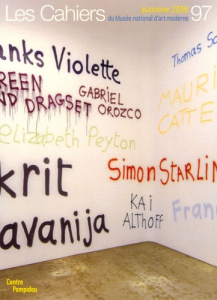 Les Cahiers
du Musée national d'art moderne
automne 2006
97
anks Violette
REEN
ND DRAGSET
GABRIEL
OROZCO
Elizabeth Peyton
krit
avanija
Thomas Sc
MAURI
CATTE
Simon STARLIN
KAI
ALTHOFF
Franc
Centre
Pompidou